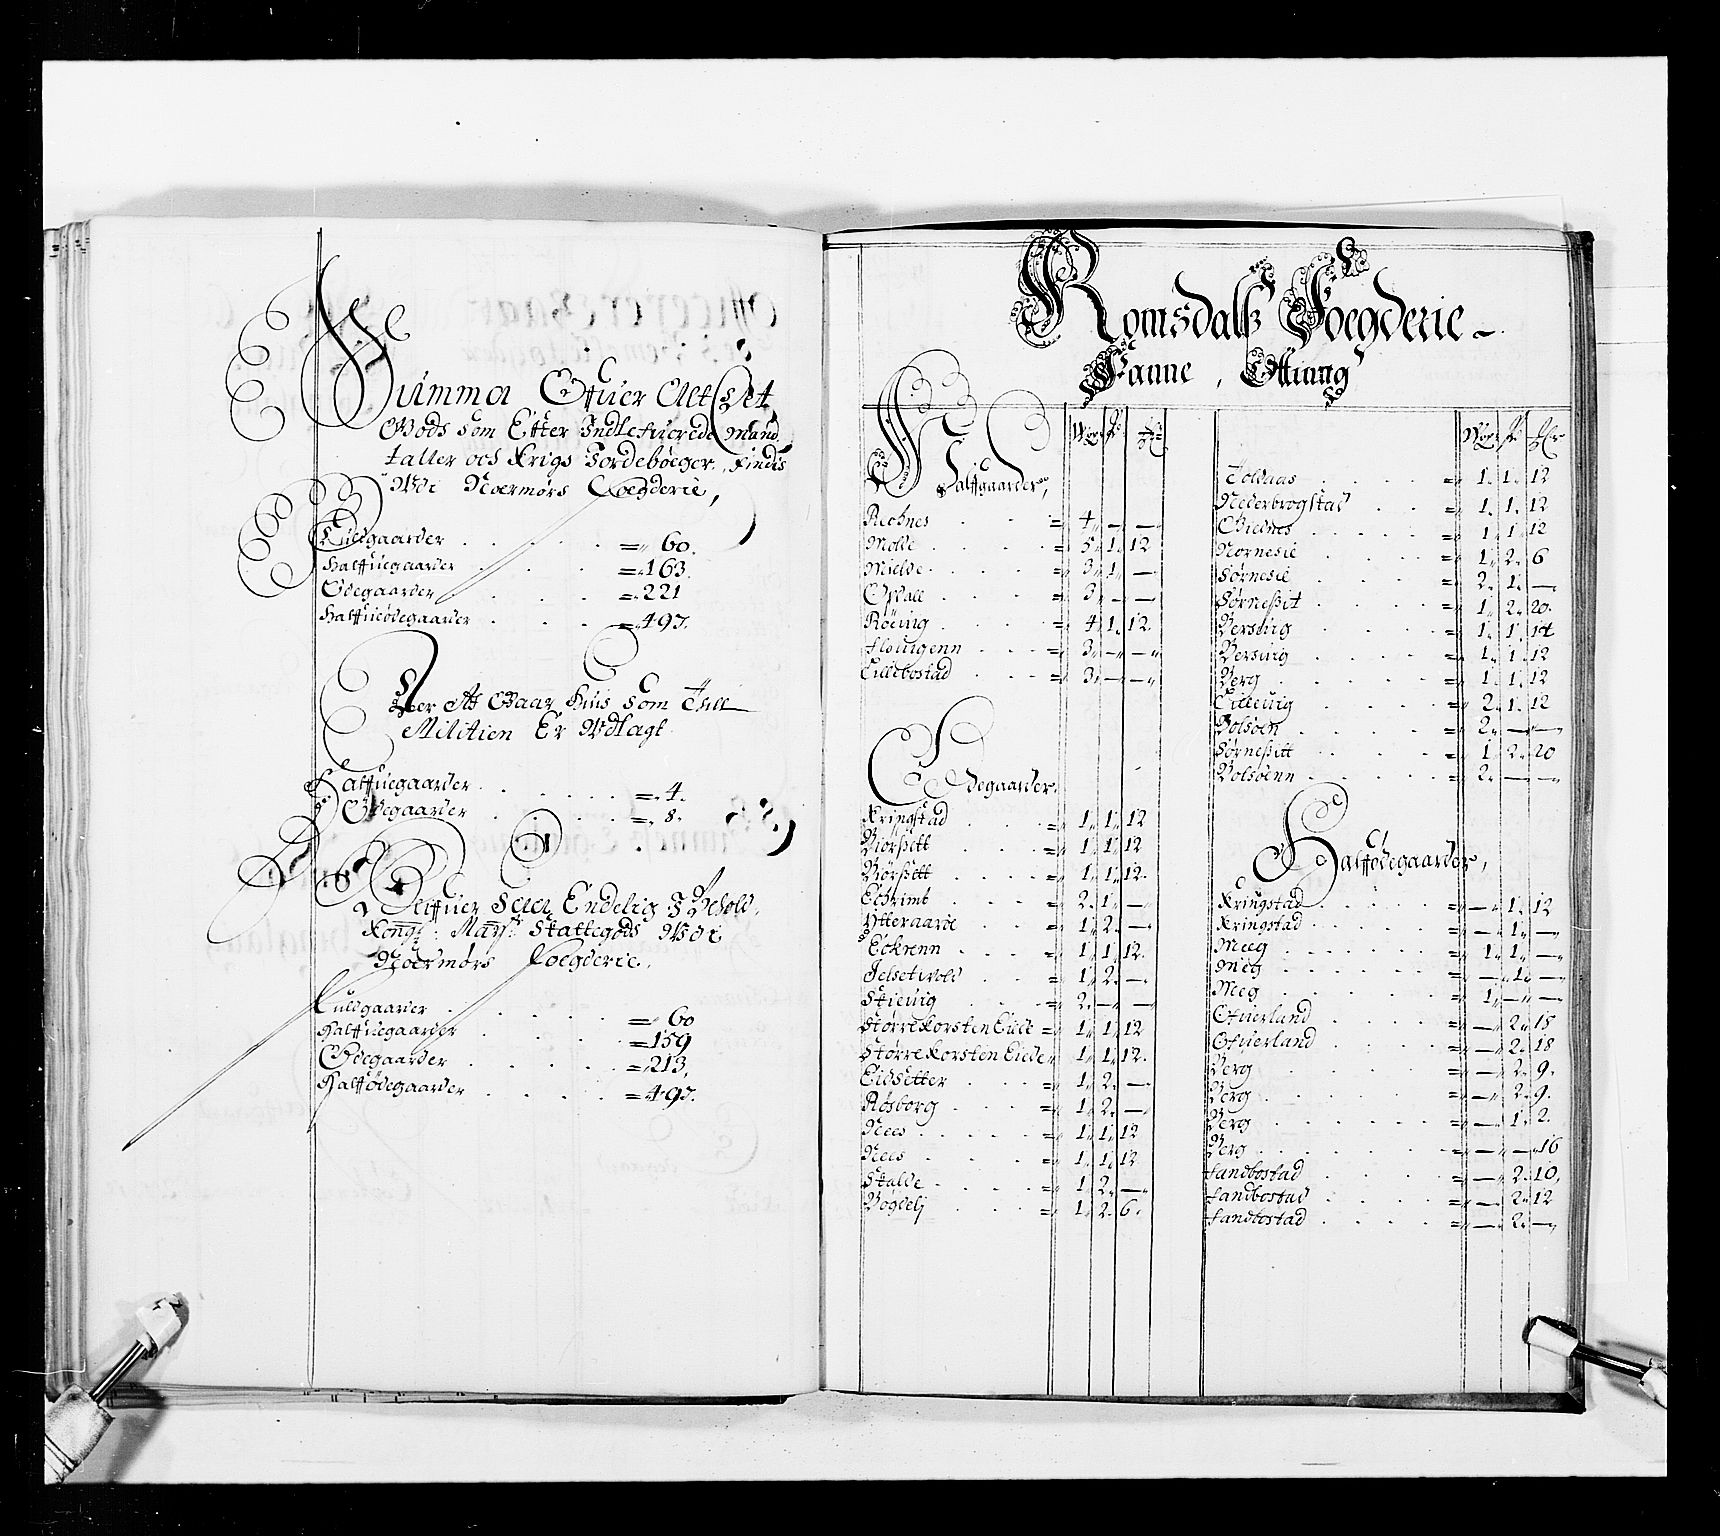 Summa Offuer Alt det
Gods som Efter Indlefuerede Mand
taller och Krigs Jordebøeger, findis
Wdi Noermørs Foegderie,
Fuldgaarder = 60.
Halffuegaarder = 163.
Ødegaarder = 221
Halffueødegaarder = 497.
Der Aff Gaar huis som till
Militien Er Wdlagt
Halffuegaarder = 4.
Ødegaarder = 8.
Bliffuer Endelig I Behold.
Kongl: Mayst: Skattegods Wdi
Noermørs Foegderie.
Fuldgaarder = 60
Halffuegaarder = 159
Ødegaarder = 213,
Halffødegaarder = 497.
Romsdalß Foegderie
Fanne, Otting
Halffgaarder,
Rechnes = 4. — —
Molde = 5. 1. 12
Mielde = 3. 1. —
= 3. — —
Røeiug = 4. 1. 12.
Hougenn = 3. — —
Lillebostad = 3. — —
Ødegaarder.
Kringstad = 1. 1. 12
Biørßett = 1. 1. 12
Biørßett = 1. 1. 12.
Echrimb = 2. 1. —
Ytteraarøe = 1. 2. —
Eckrenn = 1. 1. 12.
Jelsetwold = 1. 2. —
Skieuig = 2. — —
Større Korsten Eide = 1. 1. 12
Større Korsten Eide = 1. 1. 12.
Eidsetter = 1. 2. —
Røsborg = 1. 2. —
Nees = 1. 1. 12
Nees = 1. 1. 12
Skalde = 1. 2. —
Bøgdelj = 1. 2. 6.
Toldaas = 1. 1. 12
Nederbrogstad = 1. 1. 12
Gielnes = 1. 1. 12
Nornesie = 1. 2. 6
Sørnesie = 2. 1. —
Sørneßit = 1. 2. 20.
Bersuig = 1. 1. 14
Bersuig = 1. 1. 12
Berg = 1. 1. 12
Lilleuig = 2. 1. 12
Bolsøen = 2. — —
Sørneßitt = 1. 2. 20
Bolsøenn = 2. — —
Halffødegaarder,
Kringstad = — 1. 12
Kringstad = — 1. —
Meeg = 1. 1. —
Meg = — 1. —
Meeg = 1. — —
Ofuerland = — 2. 15
Ofuerland = — 2. 18
Berg = — 2. 9.
Berg = — 2. 9.
Berg = — 1. 2.
Berg = — — 16
Fandbostad = — 2. 10.
Fandbostad = — 2. 12
Fandbostad = — 2. —